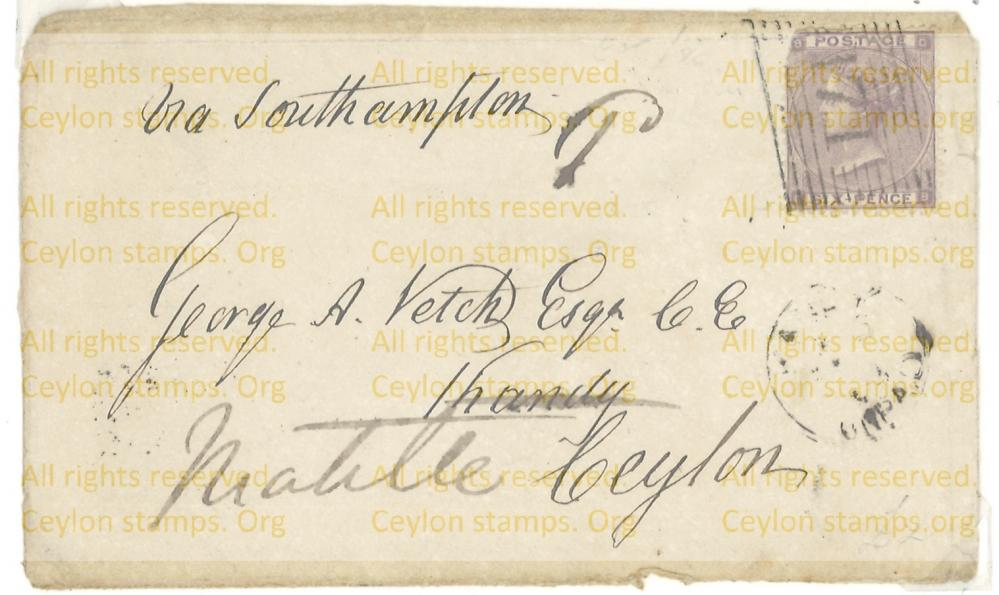 POSTAGE
SIX PENCE
Via Southampton
George A. Vetch Esqr C. E
Kandy
Matille Ceylon
PAID
All rights reserved. All rights reserved. All rights reserved.
Ceylon stamps. Org Ceylon stamps. Org Ceylon stamps. Org
All rights reserved. All rights reserved. All rights reserved.
Ceylon stamps. Org Ceylon stamps. Org Ceylon stamps. Org
All rights reserved. All rights reserved. All rights reserved.
Ceylon stamps. Org Ceylon stamps. Org Ceylon stamps. Org
All rights reserved. All rights reserved. All rights reserved.
Ceylon stamps. Org Ceylon stamps. Org Ceylon stamps. Org